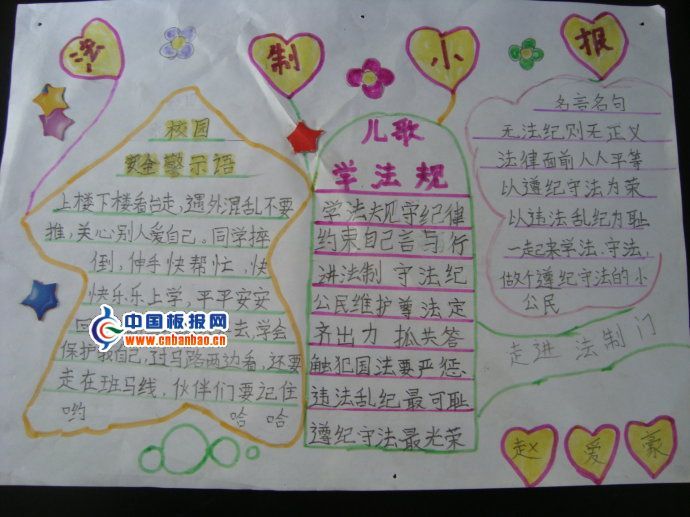 法 制 小 报
校园
安全警示语
上楼下楼看台走,遇外混乱不要
推,关心别人爱自己。同学摔
倒,伸手快帮忙,快
快乐乐上学,平平安安
回
去,学会
保护我自己,过马路两边看,还要
走在班马线,伙伴们要记住
哟 哈哈
中国板报网
www.cnbanbao.cn
儿歌
学法规
学法规守纪律
约束自己言与行
进法制 守法纪
公民维护尊法定
齐出力 抓共答
触犯国法要严惩
违法乱纪最可耻
遵纪守法最光荣
名言名句
无法纪则无正义
法律面前人人平等
以遵纪守法为荣
以违法乱纪为耻
一起来学法、守法,
做个遵纪守法的小
公民
走进法制门
赵 爱 豪